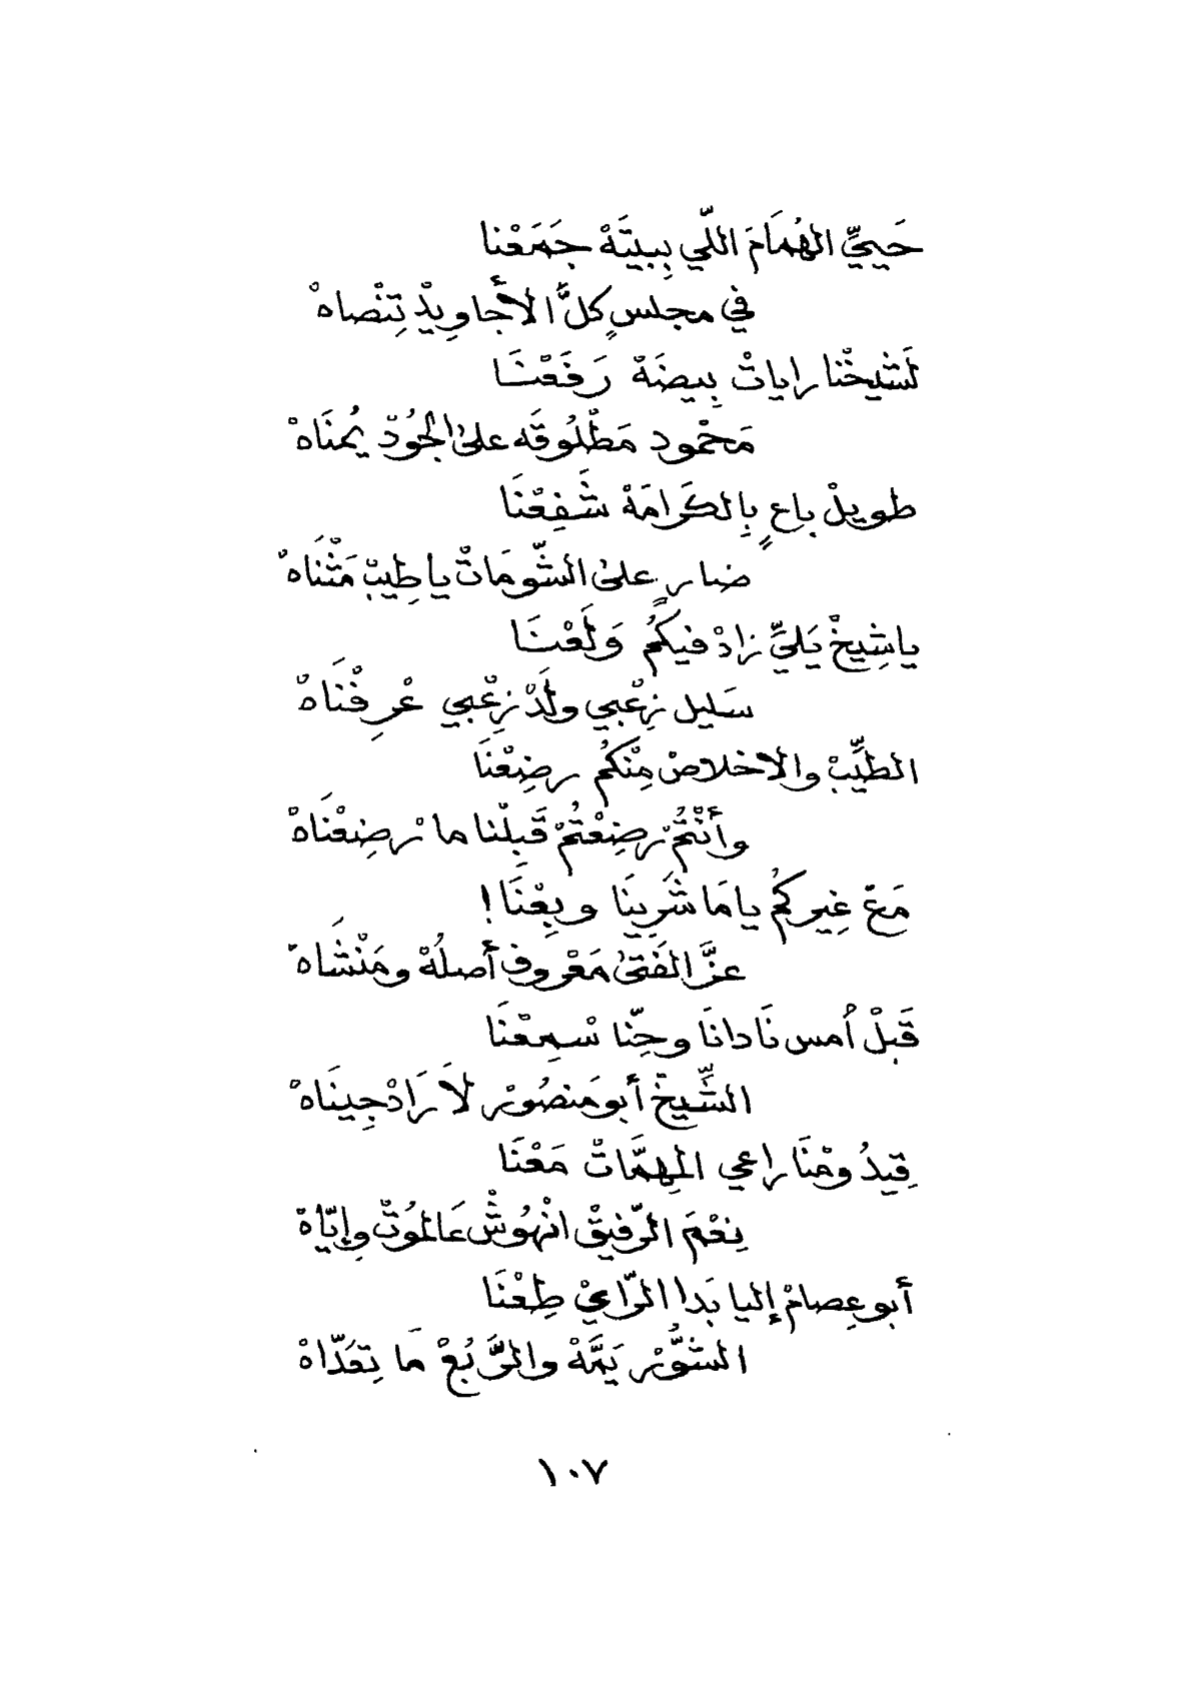 حَييِّ الهُمَامَ اللّي بِبيتَهْ جَمَعْنا
في مجلسٍ كلَّ الأجاوِيدْ تِنْصاهْ
لَشيخْنا راياتْ بِيضَهْ رَفَعْنَا
مَحْمود مَطْلُوقَه على الجُودْ يُمنَاهْ
طويلْ باعٍ بِالكَرامَهْ شَفِعْنَا
ضارٍ على الشّومَاتْ يا طِيبْ مَثْنَاهْ
يا شِيخْ يَليِّ زادْ فيكُم وَلَعْنَا
سَليل زِعْبي ولَدْ زِعْبي عْرِفْنَاهْ
الطيِّبْ والاخلاصْ مِنْكُم رضِعْنَا
وأنْتُمْ رضِعْتُمْ قَبِلْنا ما رْضِعْنَاهْ
مَعْ غِيركُم ياما شَرِينَا وبِعْنَا!
عزَّ الفَتىٰ مَعْروف أصلُهْ ومَنْشَاهْ
قَبْلْ أمس نَادانَا وحِنّا سْمِعْنَا
الشِّيخْ أبو مَنصُورْ لاَ رَادْ جِينَاهْ
قِيدُومْنَا راعي المِهِمَّاتْ مَعْنَا
نِعْمَ الرّفيقْ انْهُوشْ عَالموُتْ وِإيّاهْ
أبو عِصامْ إليا بَدا الرّاعِيْ طِعْنَا
الشّورْ يَمَّهْ والرَّبُعْ مَا تِعَدّاهْ
١٠٧